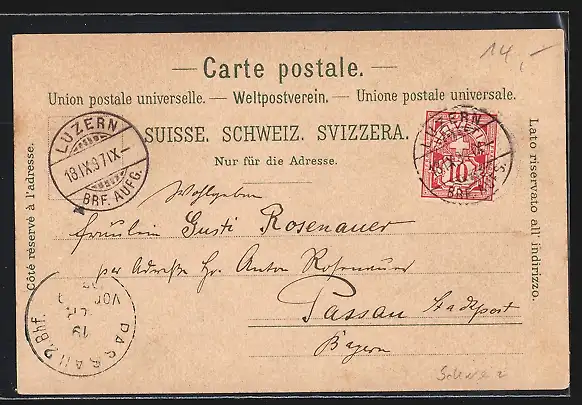 14,-
— Carte postale. —
Union postale universelle. — Weltpostverein. — Unione postale universale.
SUISSE. SCHWEIZ. SVIZZERA.
Nur für die Adresse.
Côté réservé à l'adresse.
Lato riservato all' indirizzo.
LUZERN
18.IX.97.IX–
BRF. AUFG.
LUZERN
10
Wohlgeboren
Fräulein Gusti Rosenauer
per Adresse Hr. Anton Rosenauer
Passau Stadtpost
Bayern
PASSAU 2 Bhf.
19
VOR
Schweiz